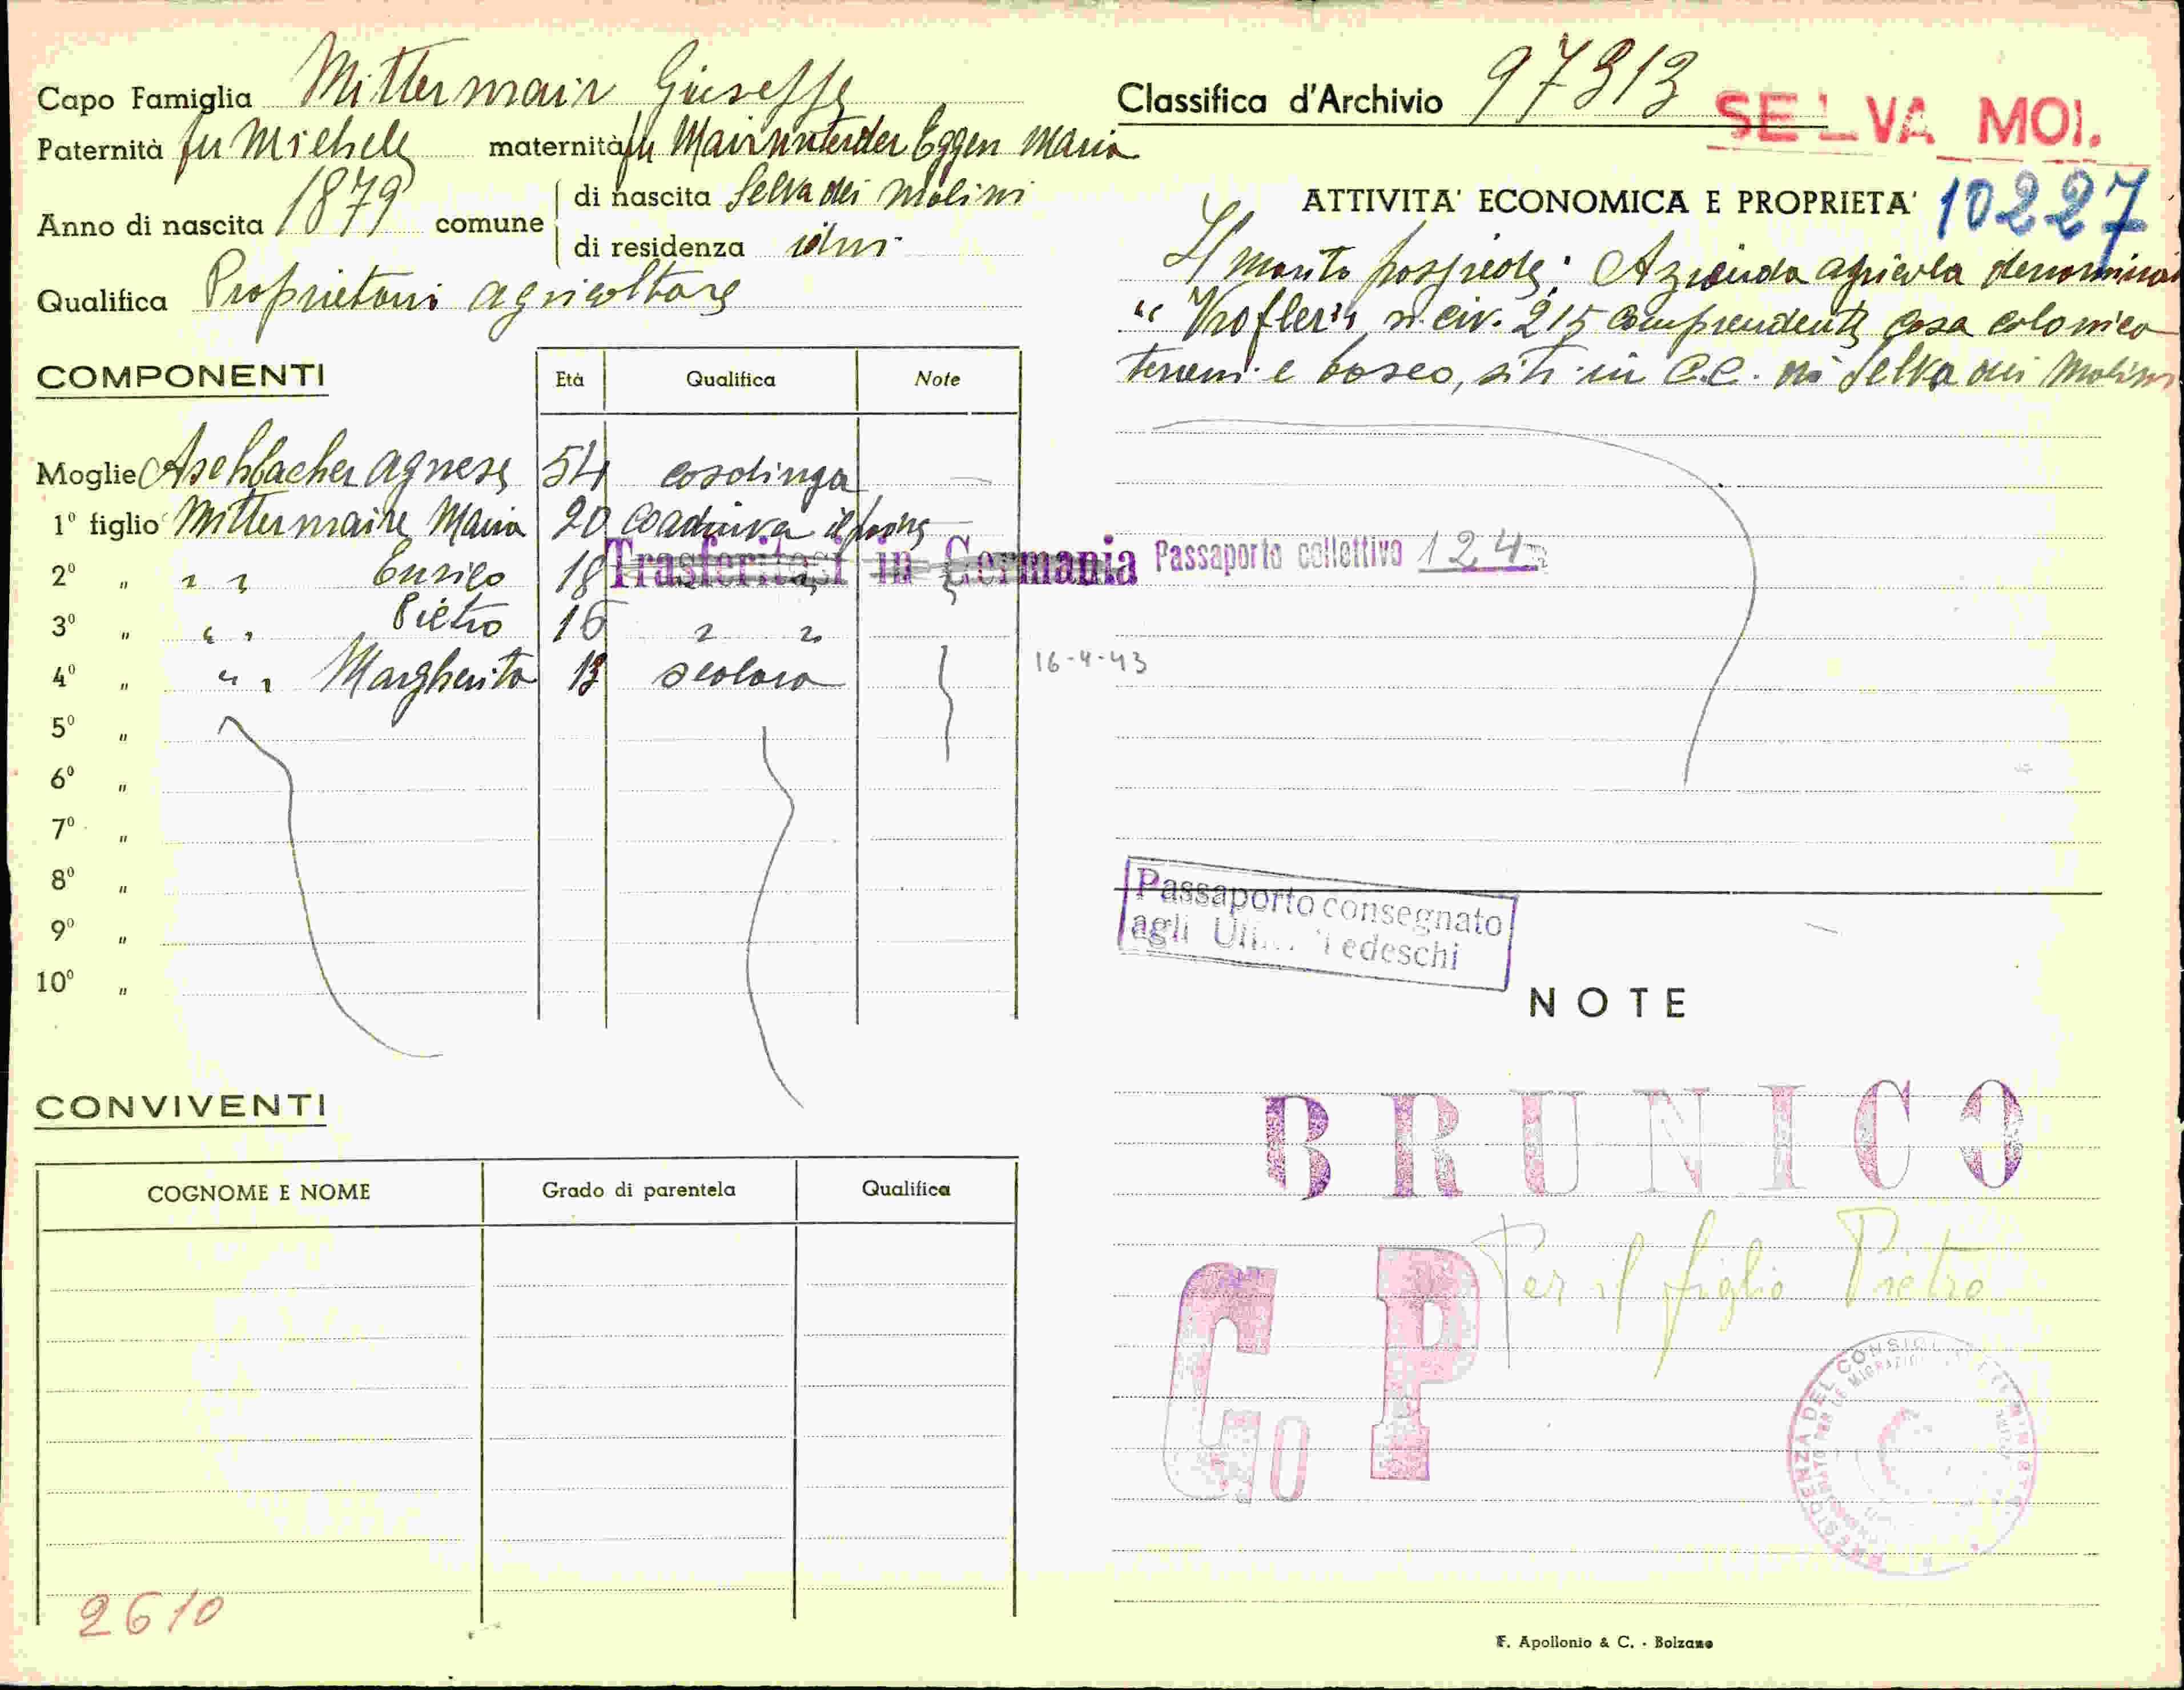 Capo Famiglia Mittermair Giuseppe
Paternità fu Michele maternità fu Mairunterder Eggen Maria
Anno di nascita 1879 comune di nascita Selva dei Molini
di residenza idem
Qualifica Proprietario agricoltore
COMPONENTI Età Qualifica Note
Moglie Aschbacher Agnese 54 casalinga
1º figlio Mittermaire Maria 20 coadiuva il padre
2º " " " Enrico 18 " "
Trasferitosi in Germania
3º " " " Pietro 16 " "
4º " " " Margherita 13 scolara
5º "
6º "
7º "
8º "
9º "
10º "
CONVIVENTI
COGNOME E NOME Grado di parentela Qualifica
2610
Classifica d'Archivio 97313
SELVA MOL.
ATTIVITA' ECONOMICA E PROPRIETA' 10227
Il marito possiede: Azienda agricola denominat
" n. civ. 215 comprendente casa colonica
terreni e bosco, siti in C.C. di Selva dei Molini
Passaporto collettivo 124
16-4-43
Passaporto consegnato
agli Tedeschi
NOTE
BRUNICO
Per il figlio Pietro
Go P
PRESIDENZA DEL CONSIGL
MIGRAZIO
F. Apollonio & C. - Bolzano